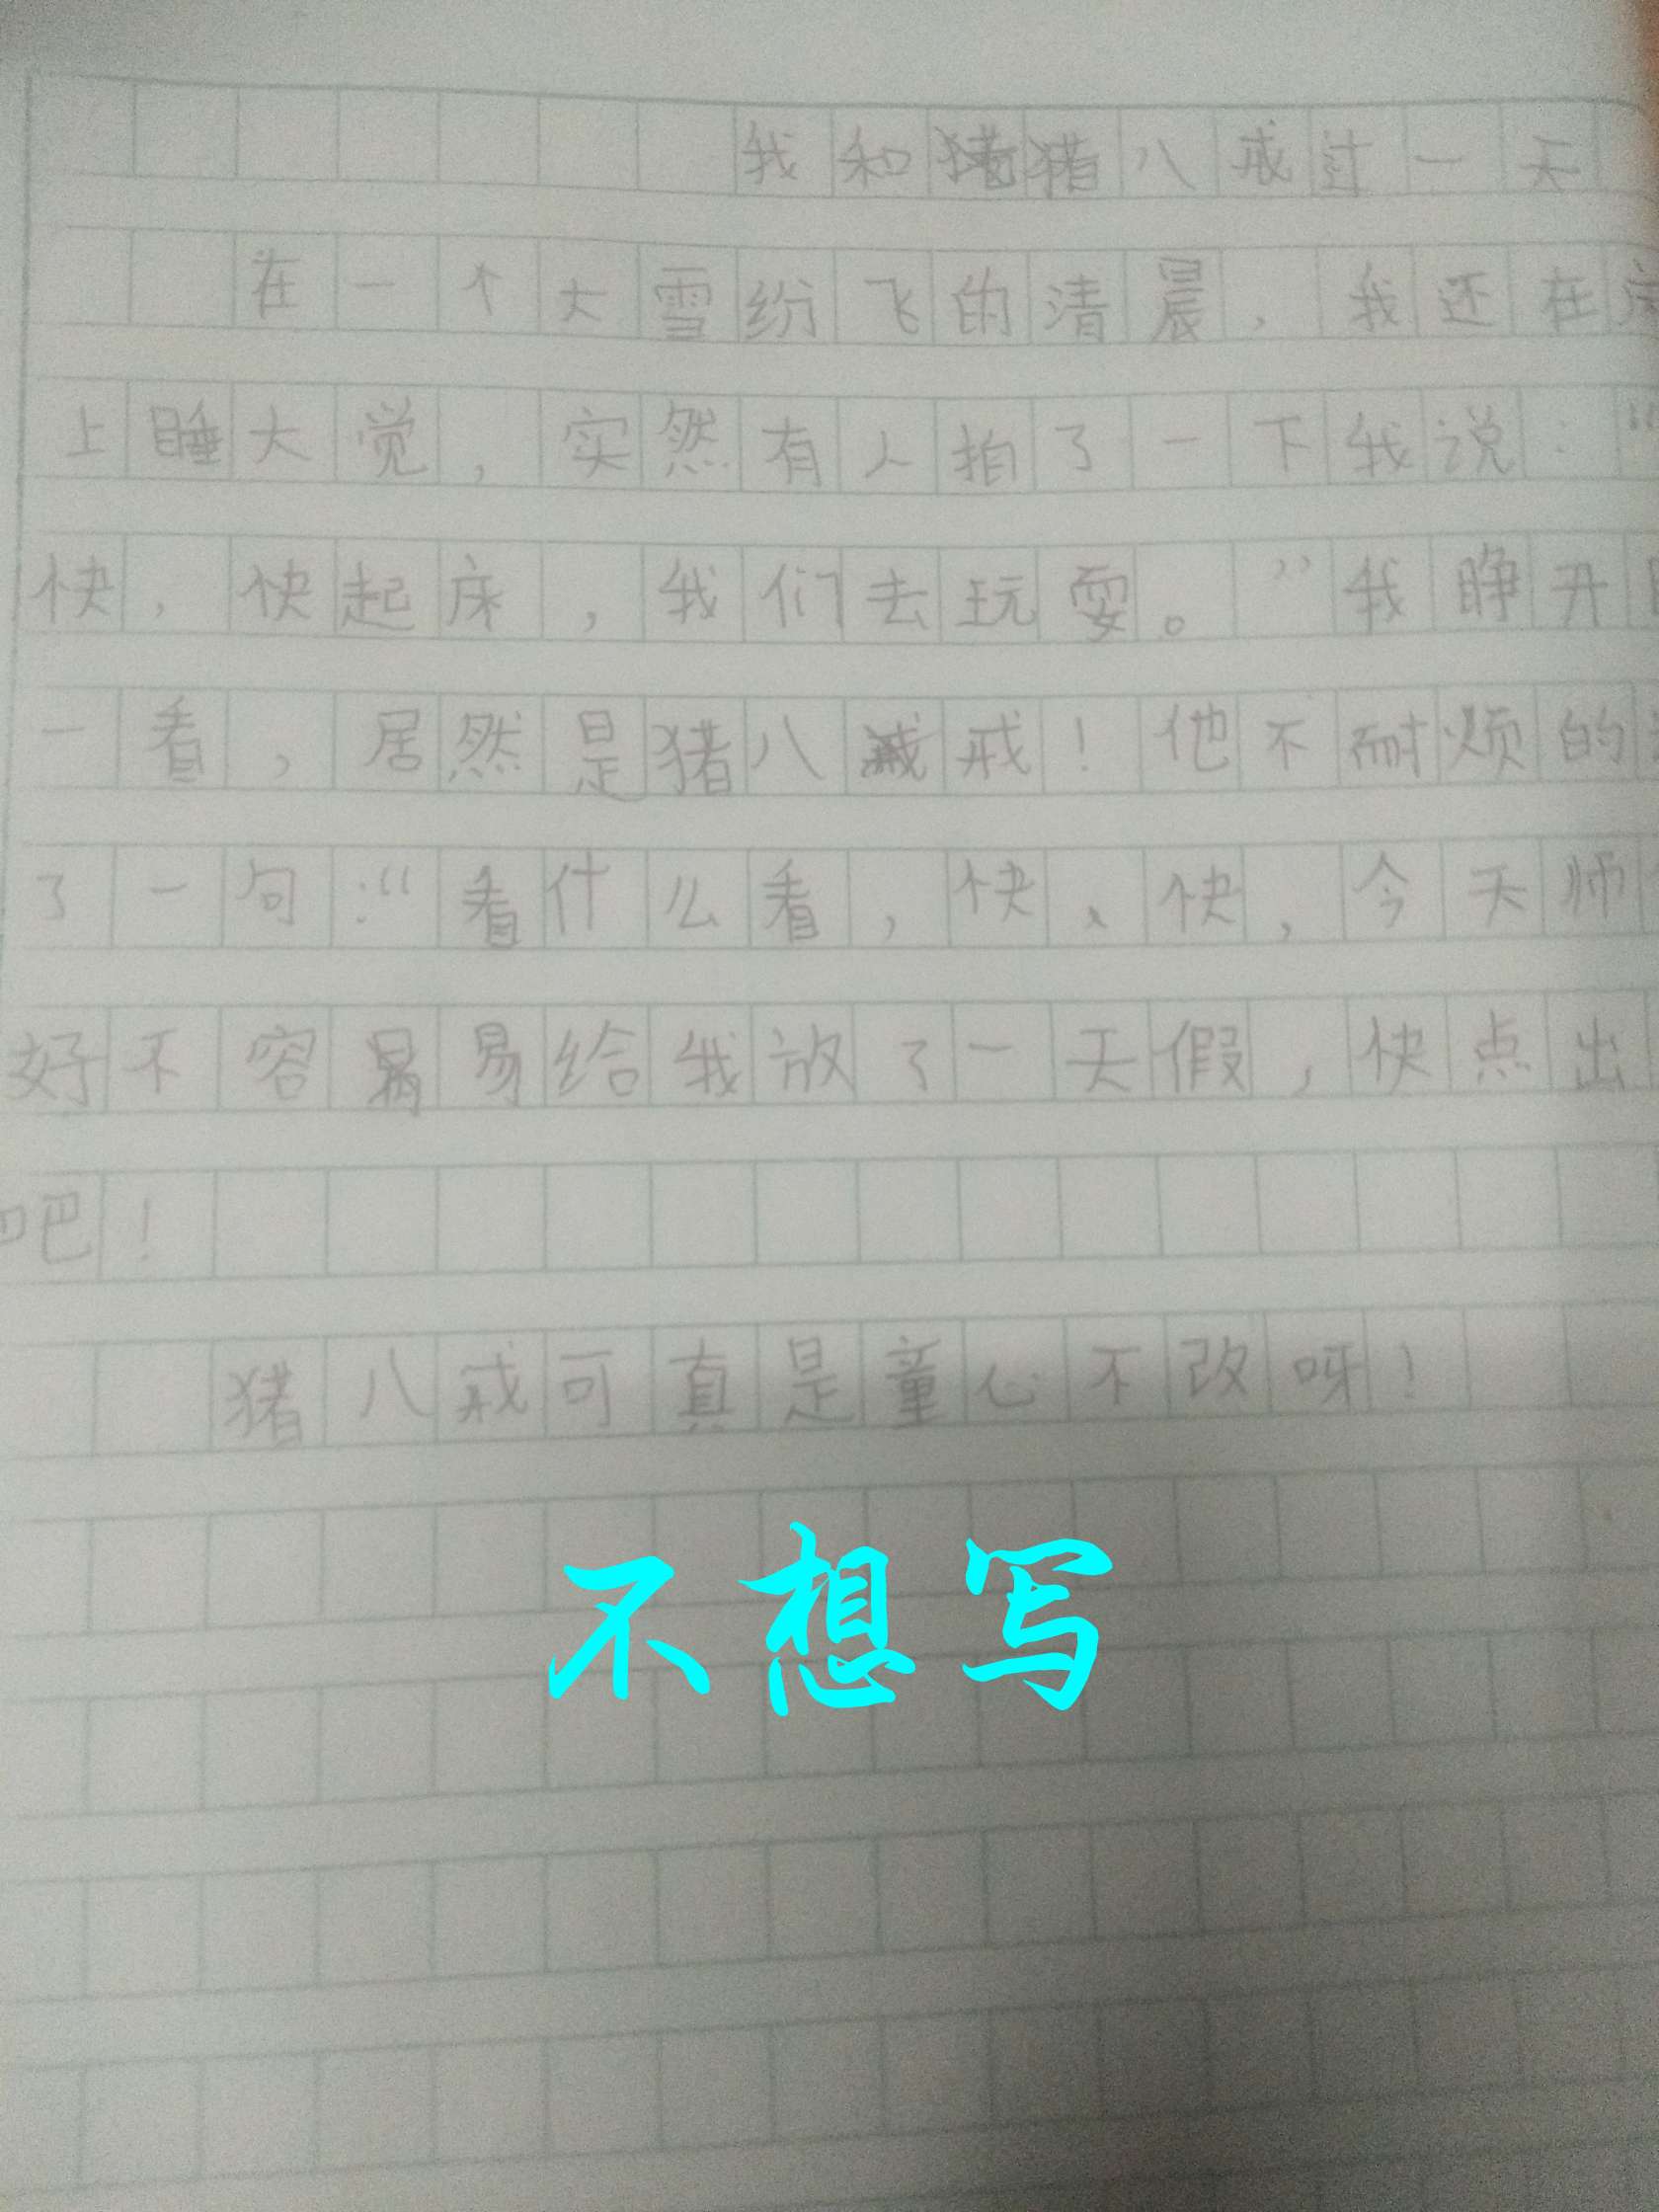 我和猪八戒过一天
在一个大雪纷飞的清晨，我还在床
上睡大觉，实然有人拍了一下我说：“
快，快起床，我们去玩耍。”我睁开
一看，居然是猪八戒！他不耐烦的
了一句：“看什么看，快、快，今天师
好不容易给我放了一天假，快点出
吧！
猪八戒可真是童心不改呀！
不想写